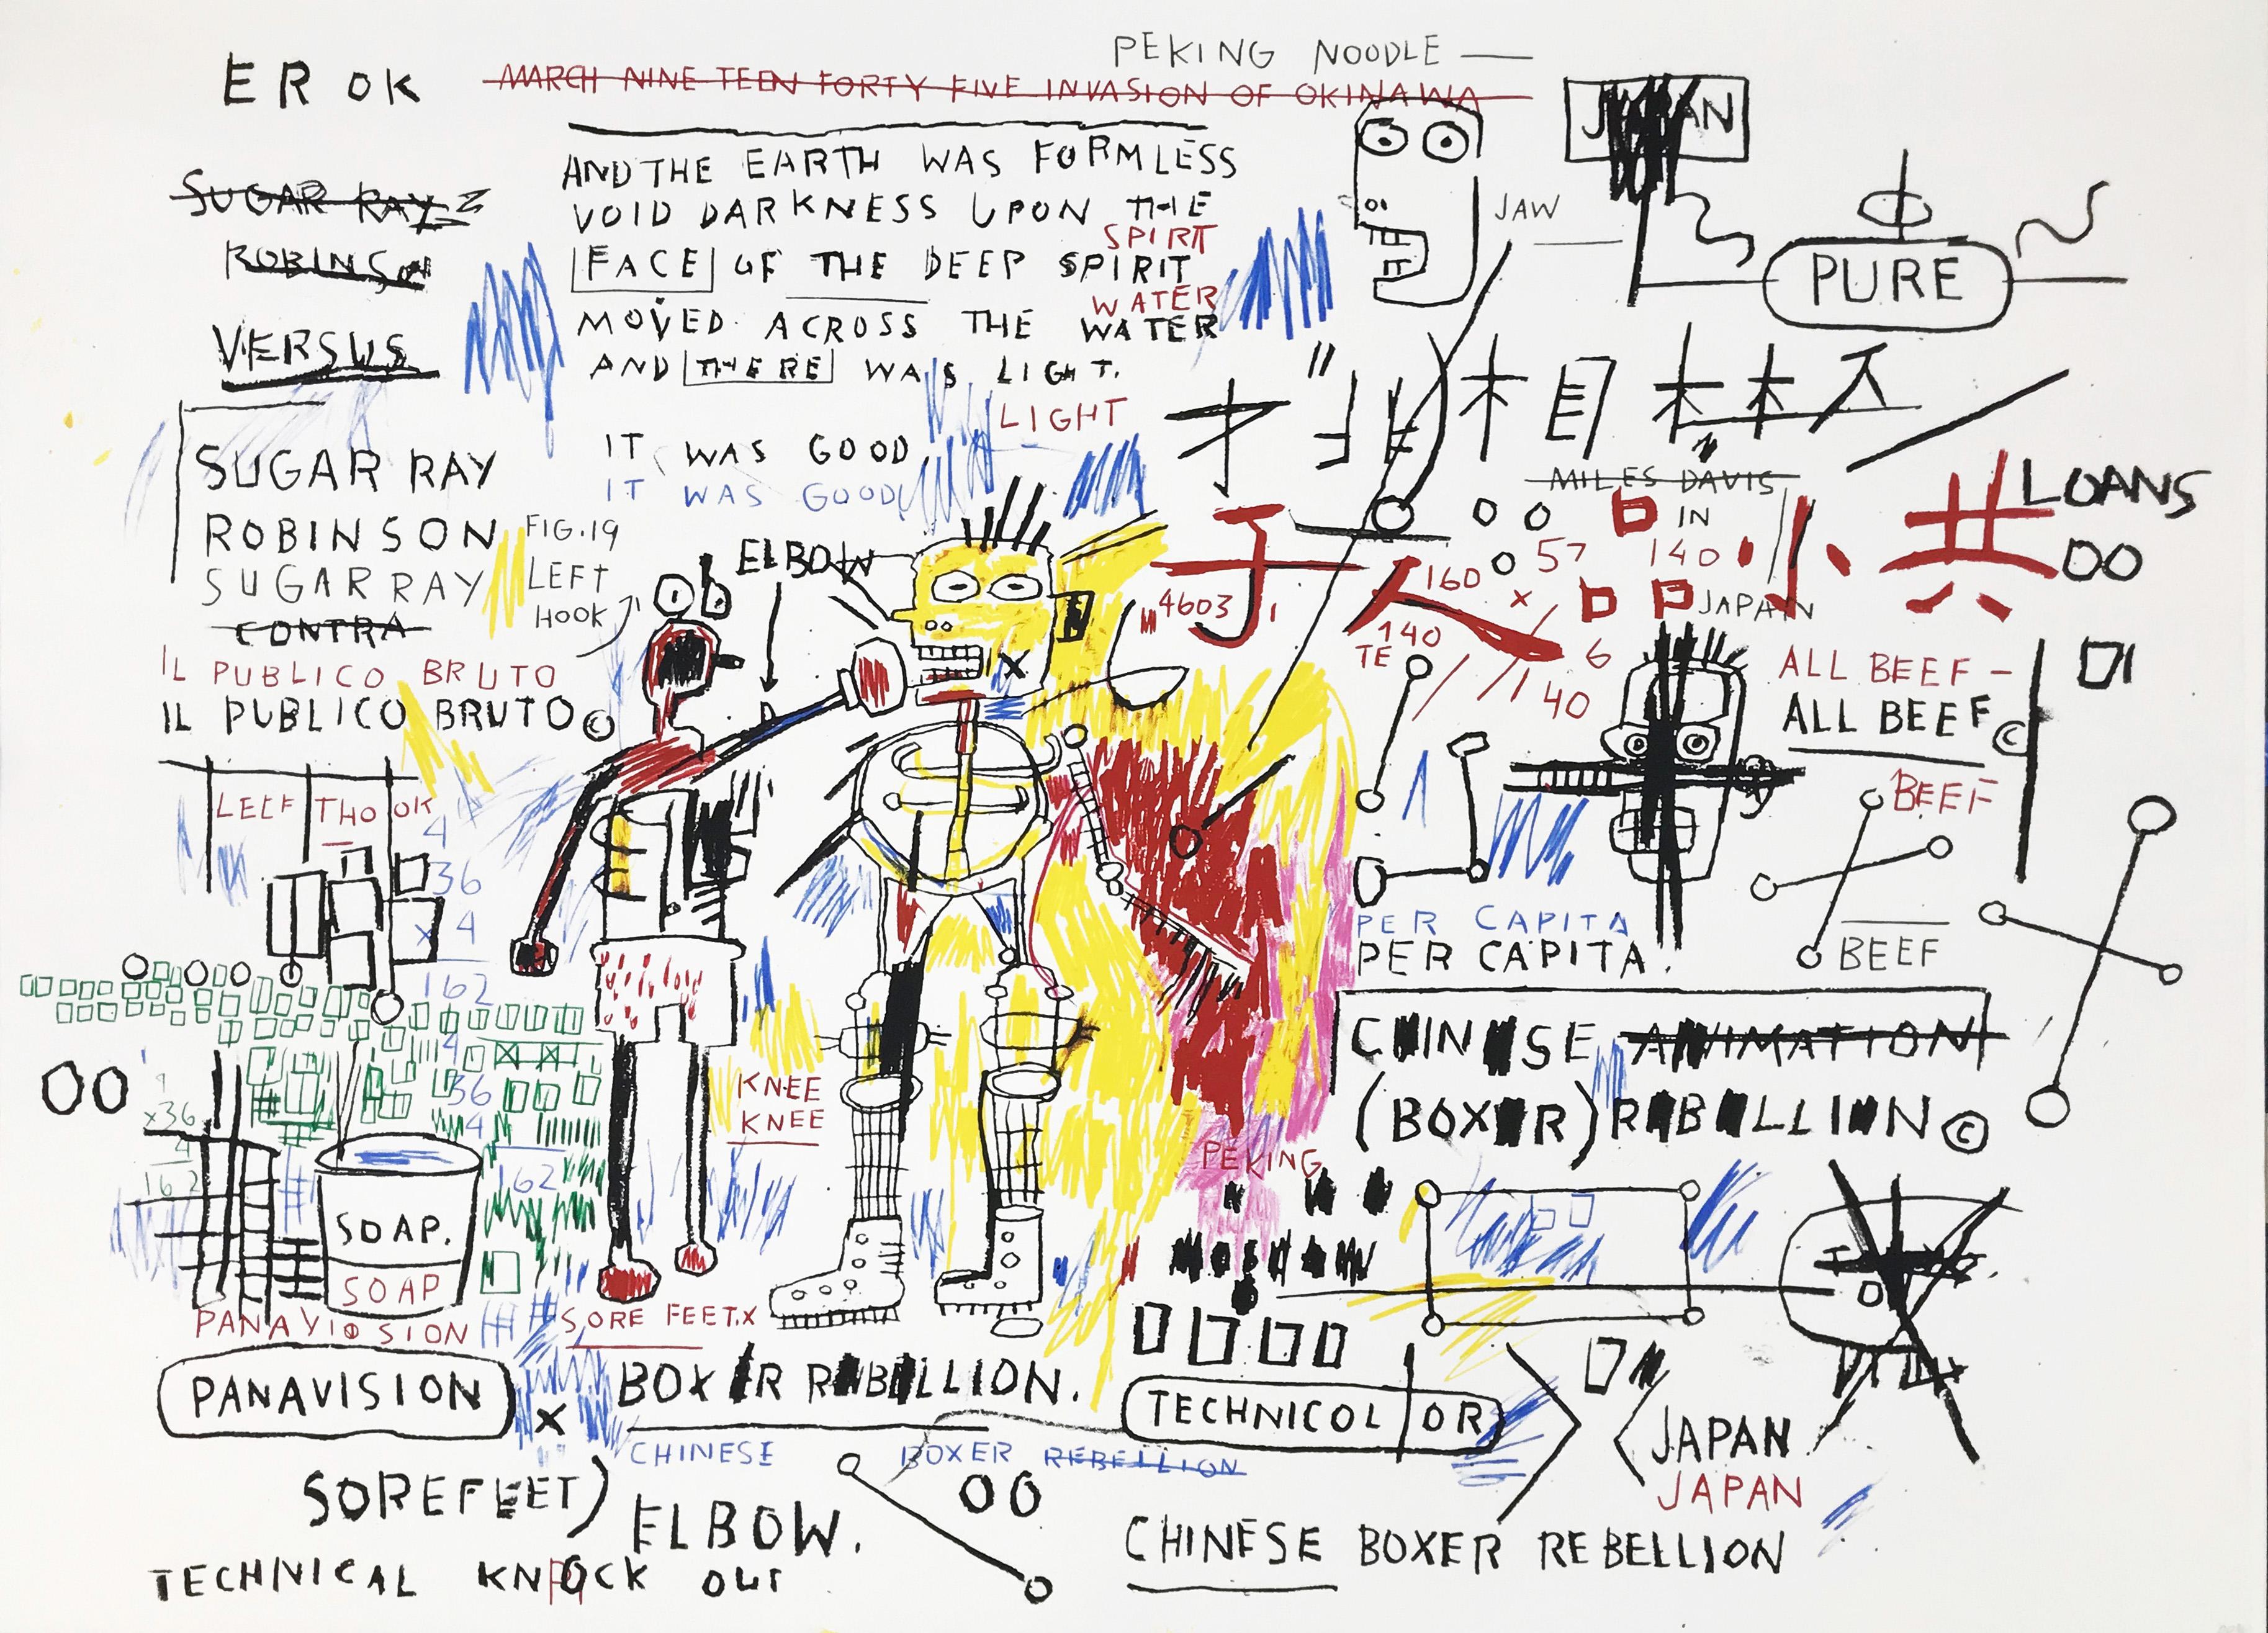 PEKING NOODLE —
ER OK
MARCH NINE TEEN FORTY FIVE INVASION OF OKINAWA
JAPAN
AND THE EARTH WAS FORMLESS
VOID DARKNESS UPON THE
SPIRIT
FACE OF THE DEEP SPIRIT
WATER
MOVED ACROSS THE WATER
AND THERE WAS LIGHT.
LIGHT
IT WAS GOOD
IT WAS GOOD
SUGAR RAY
ROBINSON
VERSUS
SUGAR RAY
ROBINSON
SUGAR RAY
CONTRA
IL PUBLICO BRUTO
IL PUBLICO BRUTO ©
FIG.19
LEFT
HOOK
ELBOW
JAW
PURE
MILES DAVIS
IN
JAPAN
子
人
小
共
LOANS
OO
57
140
160
x
4603
140
TE
6
40
ALL BEEF –
ALL BEEF ©
BEEF
BEEF
PER CAPITA
PER CAPITA.
LEEF THO OK
4
36
x 4
162
4
36
4
162
OO
x36
4
162
KNEE
KNEE
SOAP.
SOAP
PANAVISION
PANAVISION
SORE FEET.X
X
BOXER REBELLION.
CHINESE BOXER REBELLION
CHINESE ANIMATION
(BOXER) REBELLION ©
PEKING
TECHNICOLOR
JAPAN
JAPAN
SOREFEET)
ELBOW.
OO
TECHNICAL KNOCK OUT
CHINESE BOXER REBELLION